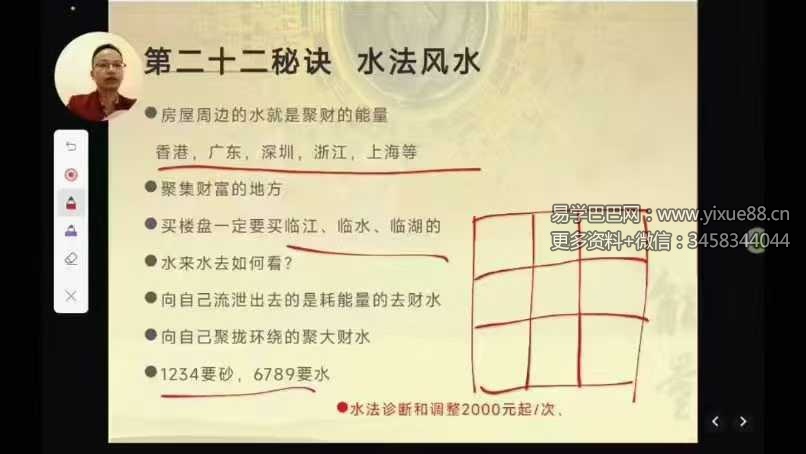 第二十二秘诀 水法风水
●房屋周边的水就是聚财的能量
香港，广东，深圳，浙江，上海等
●聚集财富的地方
●买楼盘一定要买临江、临水、临湖的
●水来水去如何看？
●向自己流泄出去的是耗能量的去财水
●向自己聚拢环绕的聚大财水
●1234要砂，6789要水
●水法诊断和调整2000元起/次、
易学巴巴网：www.yixue88.cn
更多资料+微信：3458344044
能量